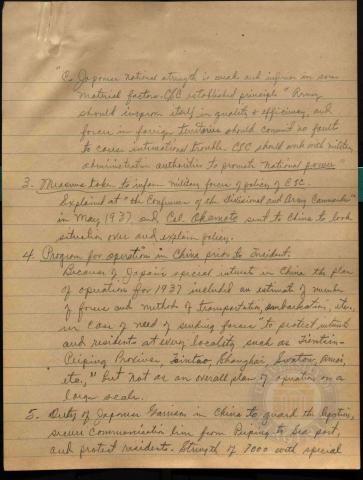 "C. Japanese national strength is weak and inferior in some
material factors. CSC established principle "Army
should improve itself in quality & efficiency, and
forces in foreign territories should commit no fault
to cause international trouble. CSC should work with military
administrative authorities to promote national power"
3. Measures taken to inform military forces of policy of CSC.
Explained at "the Conference of the divisional and Army Commanders"
in May 1937 and Col. Okamoto sent to China to look
situation over and explain policy.
4. Program for operation in China prior to Incident.
Because of Japan's special interest in China the plan
of operation for 1937 included an estimate of number
of forces and method of transportation, embarkation, etc.,
in case of need of sending forces "to protect interests
and residents at every locality such as Tientsin-
Peiping Province, Tsintao, Shanghai, Swatow, Amoi,
etc.," but not as an overall plan of operation on a
large scale.
5. Duty of Japanese Garrison in China to guard the legation,
secure communication line from Peiping to Sea port,
and protect residents. Strength of 7000 with special